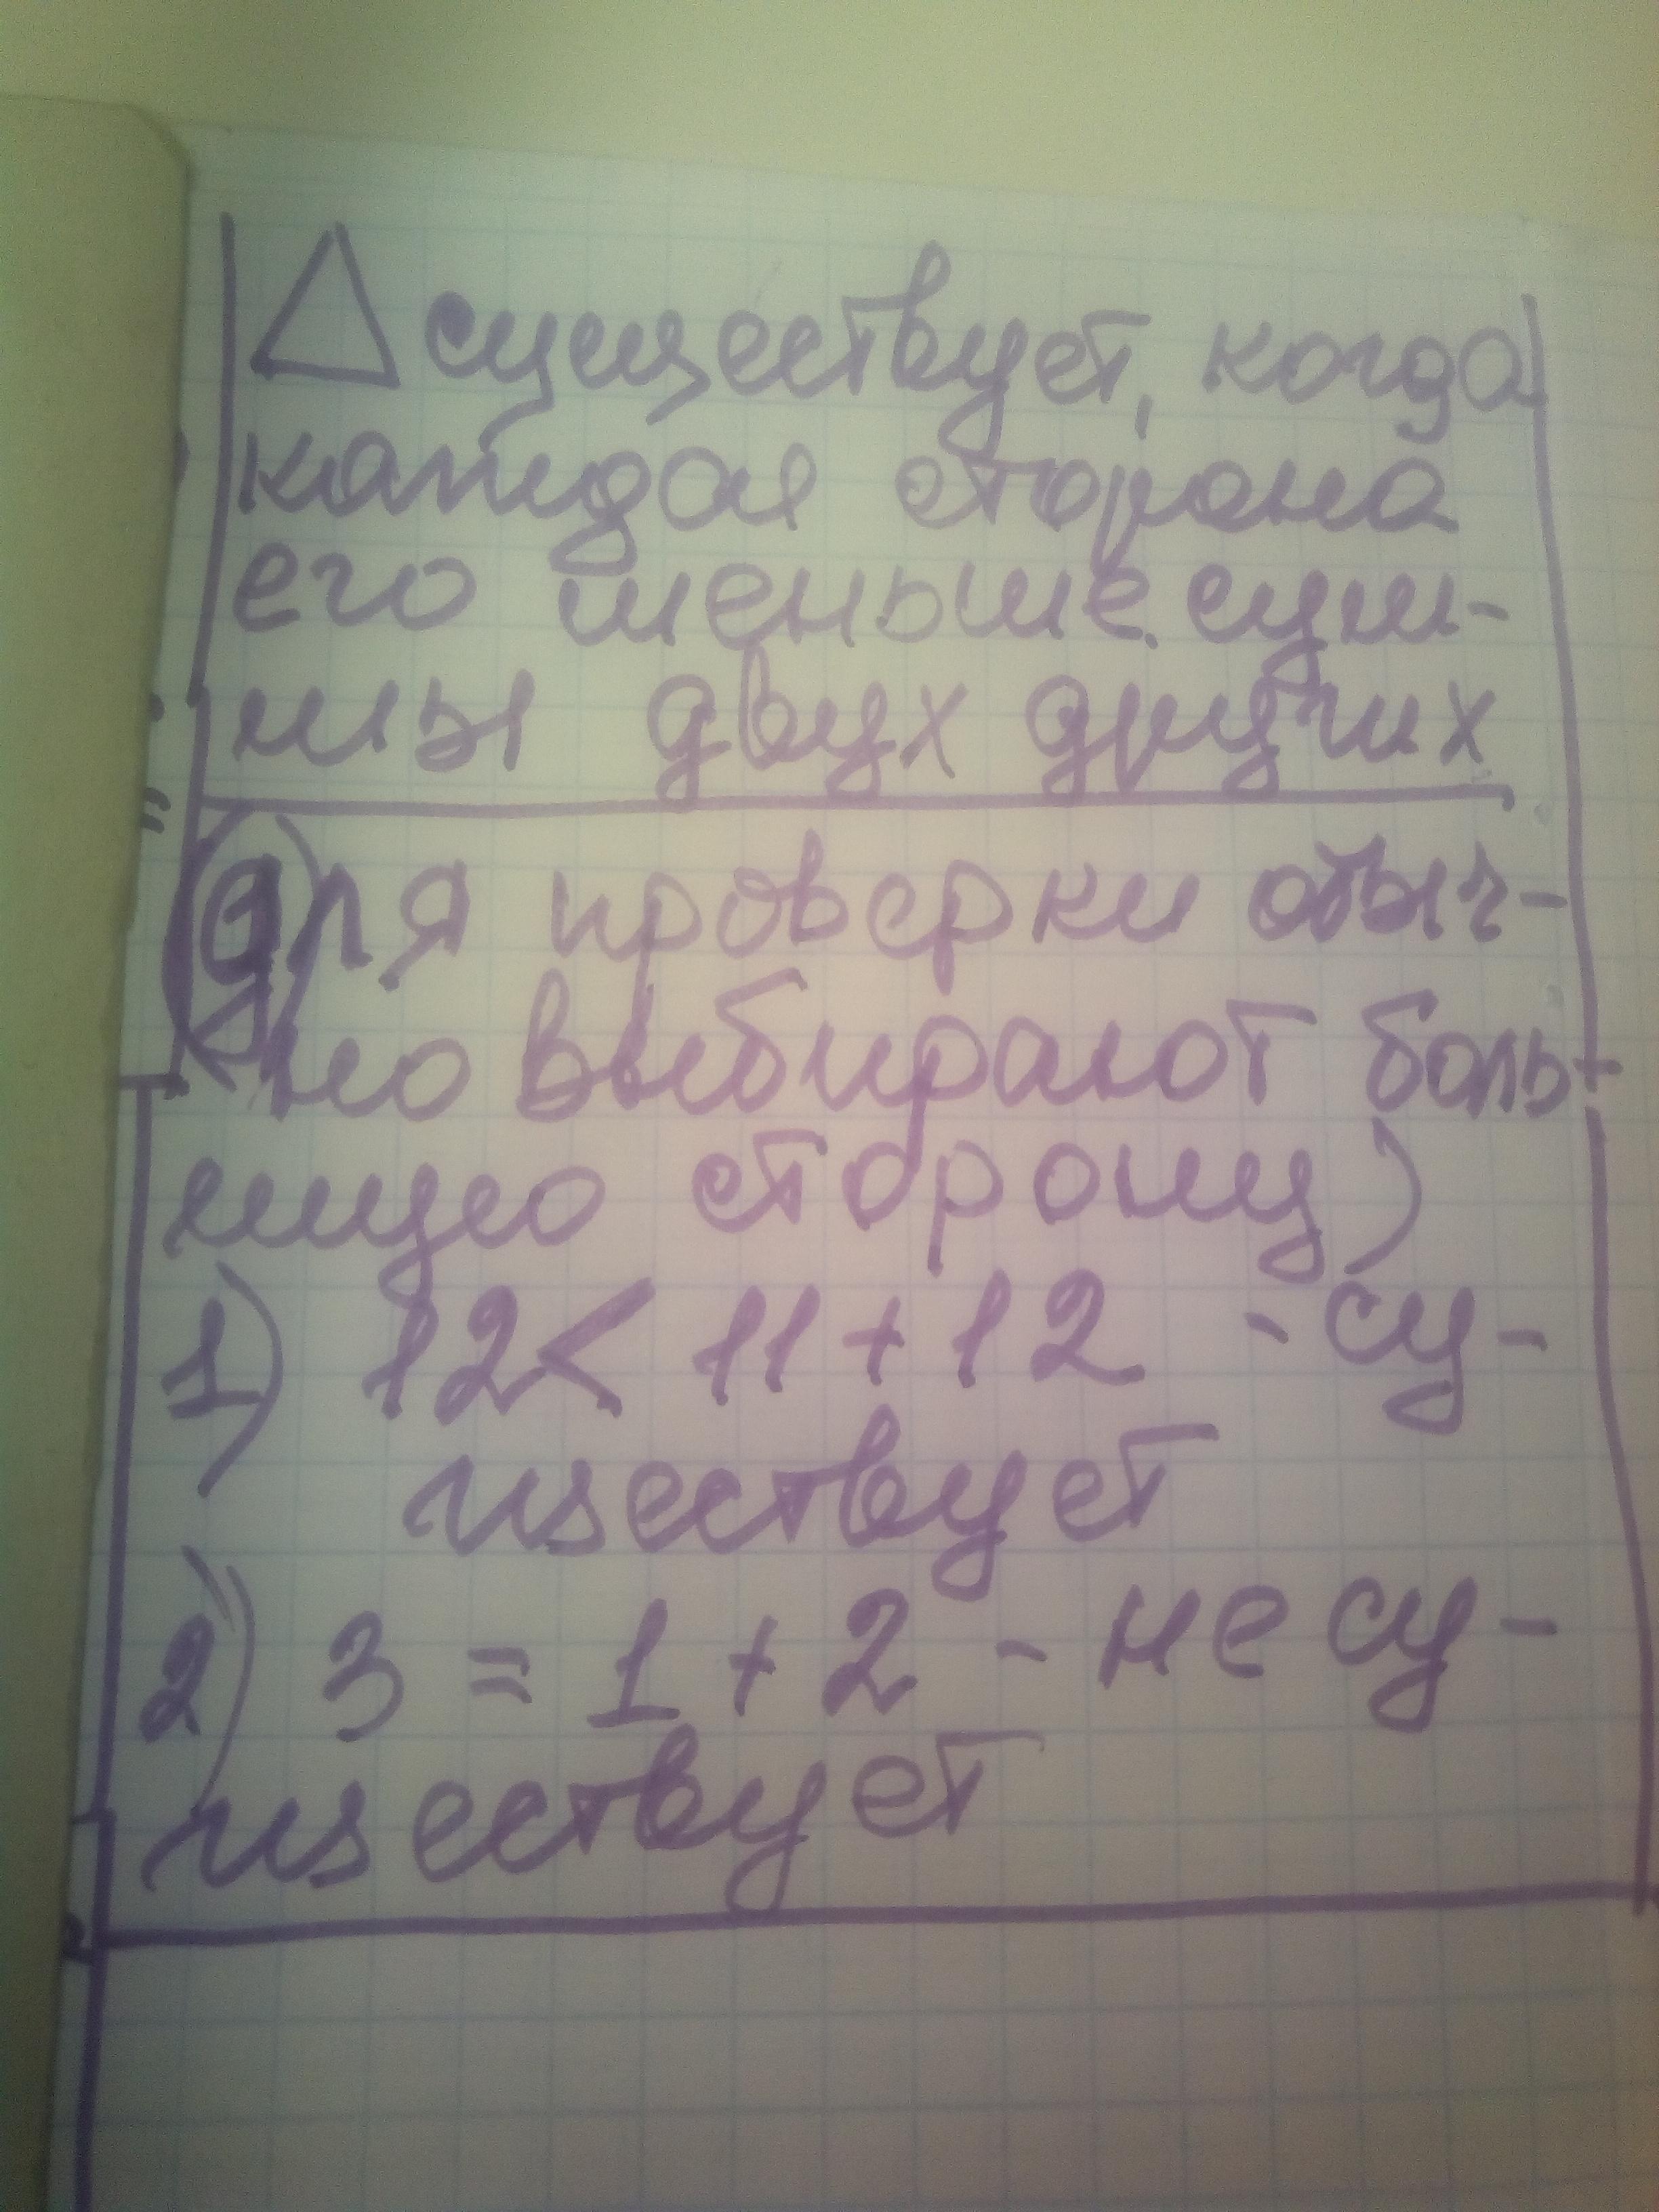 △ существует, когда
каждая сторона
его меньше сум-
мы двух других
(для проверки обыч-
но выбирают боль-
шую сторону)
1) 12 < 11 + 12 - су-
ществует
2) 3 = 1 + 2 - не су-
ществует